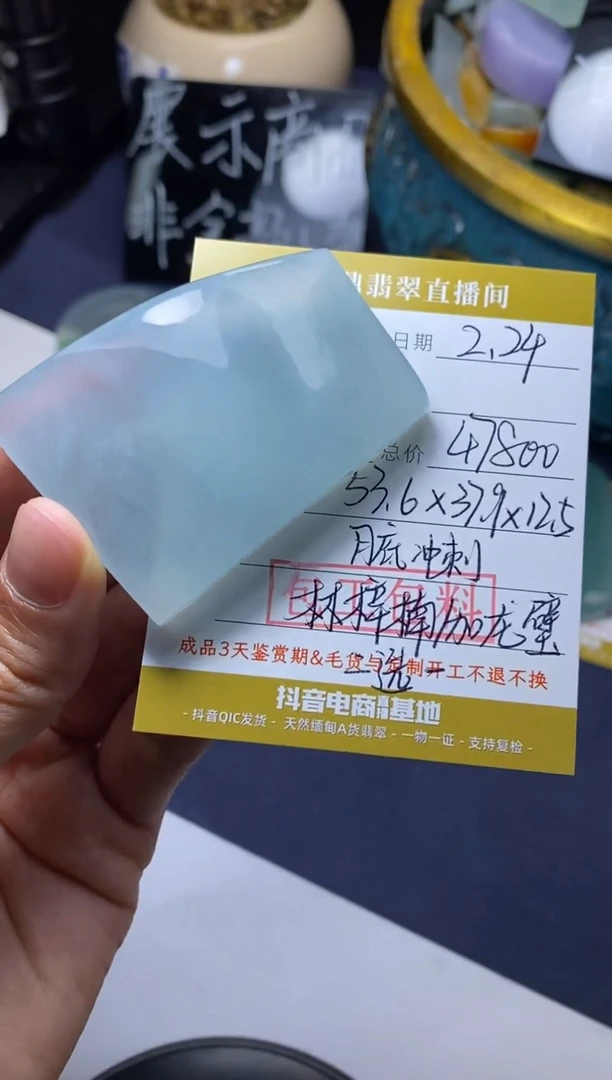 展示商
非全
翡翠直播间
日期 2.24
总价 47800
53.6×37.9×12.5
月底冲刺
包工包料
加龙璧
二选一
成品3天鉴赏期&毛货与定制开工不退不换
抖音电商基地
- 抖音QIC发货 - 天然缅甸A货翡翠 - 一物一证 - 支持复检 -